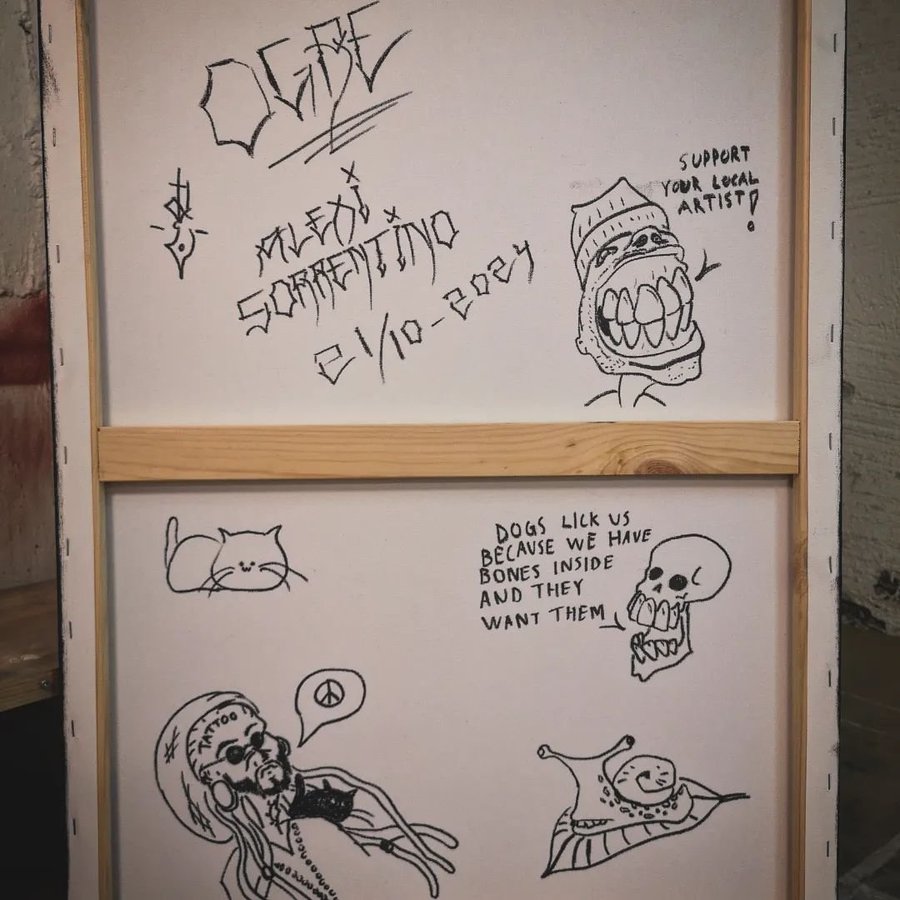 OGRE
ALEXI
SORRENTINO
21/10-2024
SUPPORT
YOUR LOCAL
ARTIST!
DOGS LICK US
BECAUSE WE HAVE
BONES INSIDE
AND THEY
WANT THEM
TATTOO